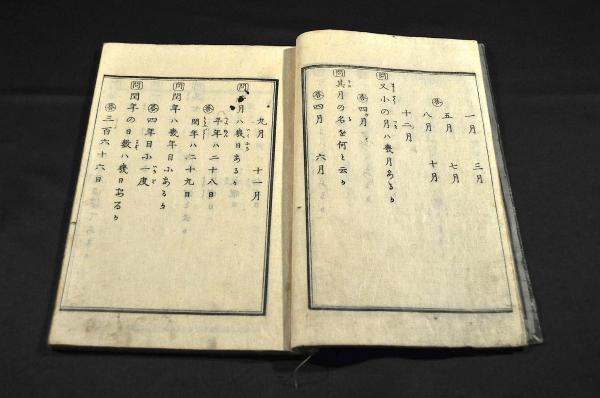 一月 三月
五月 七月
答 八月 十月
十二月
問 又小の月ハ幾月あるか
答 四月
問 其月の名を何と云か
答 四月 六月
九月 十一月
問 月ハ幾日あるか
答 平年ハ二十八日
閏年ハ二十九日
問 閏年ハ幾年目にあるか
答 四年目に一度
問 閏年の日数ハ幾日あるか
答 三百六十六日